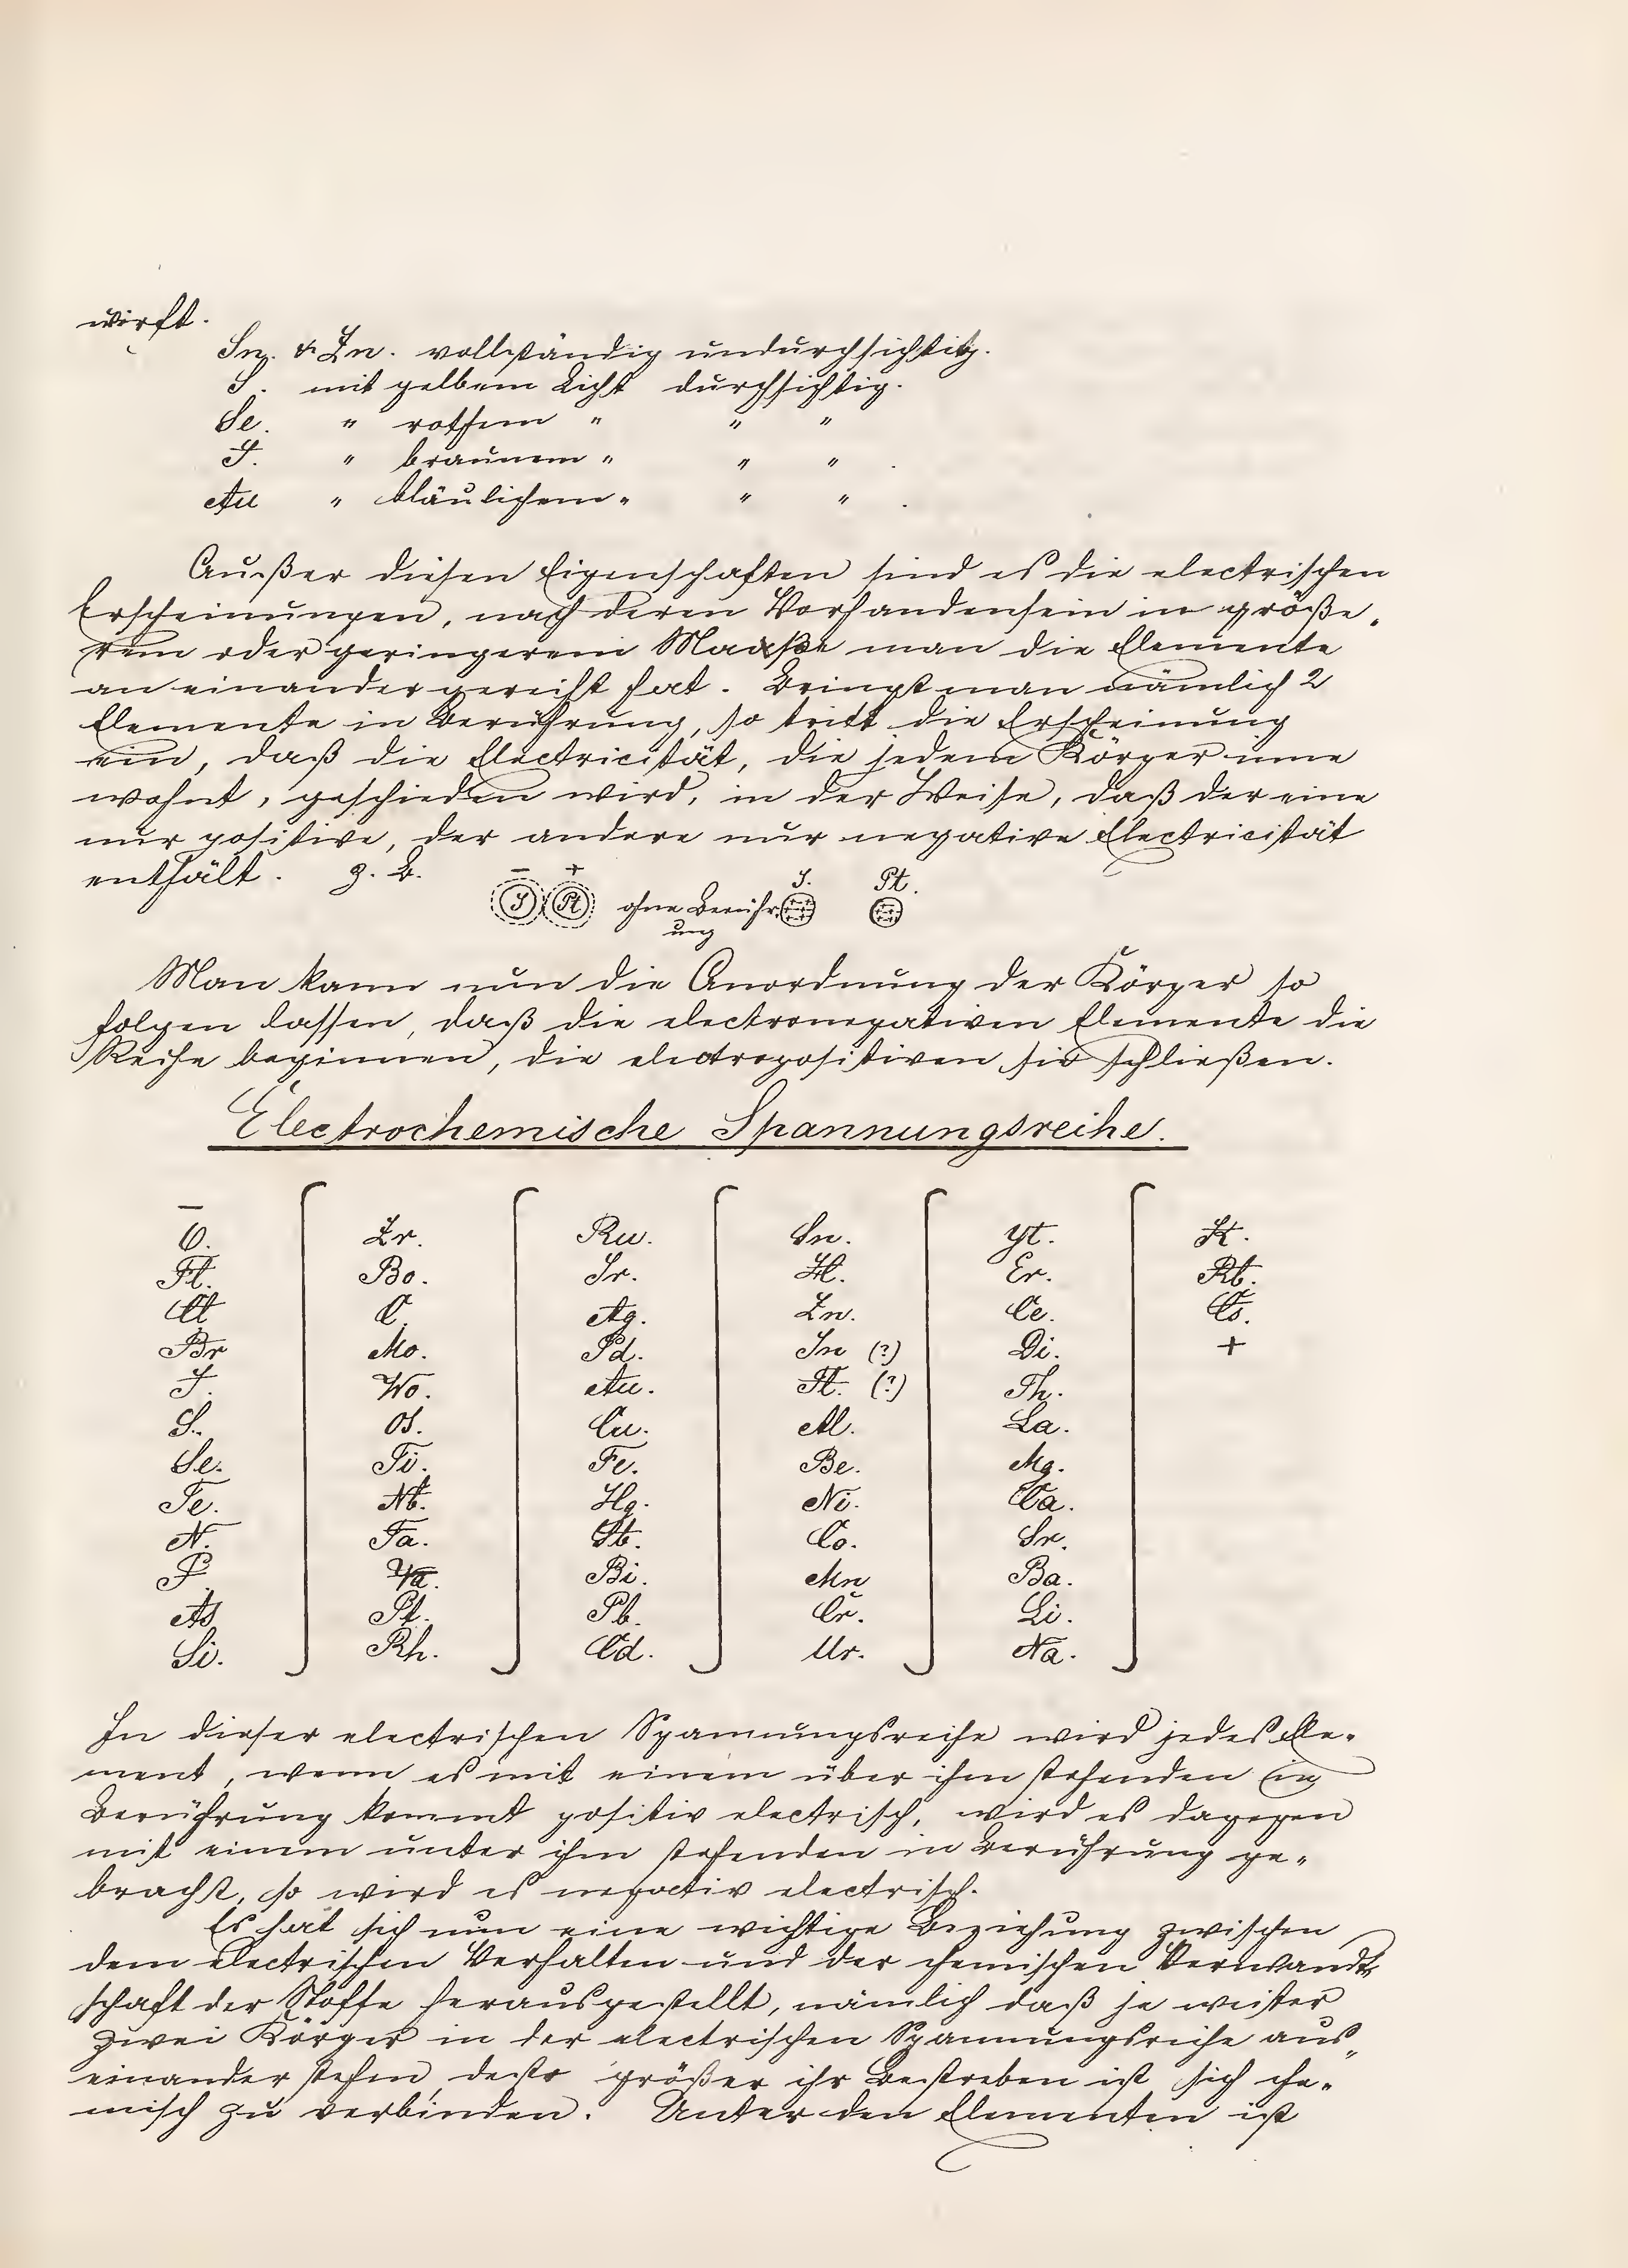 wirft.
Sn. & Zn. vollständig undurchsichtig.
S. mit gelbem Licht durchsichtig.
Se. " rothem " " "
J. " braunem " " " .
Au " bläulichem " " " .
Außer diesen Eigenschaften sind es die electrischen
Erscheinungen, nach deren Vorhandensein in größe-
rem oder geringerem Maaße man die Elemente
an einander gereiht hat. Bringt man nämlich 2
Elemente in Berührung, so tritt die Erscheinung
ein, daß die Electricität, die jedem Körper inne
wohnt, geschieden wird, in der Weise, daß der eine
nur positive, der andere nur negative Electricität
enthält. z. B.
– +
J Pt ohne Berühr- J. Pt.
ung
Man kann nun die Anordnung der Körper so
folgen lassen, daß die electronegativen Elemente die
Reihe beginnen, die electropositiven sie schließen.
Electrochemische Spannungsreihe.
–
O. Zr. Ru. Sn. Yt. K.
Fl. Bo. Ir. H. Er. Rb.
Cl C. Ag. Zn. Ce. Cs.
Br Mo. Pd. In (?) Di. +
J. Wo. Au. Tl. (?) Th.
S. Os. Cu. Al. La.
Se. Ti. Fe. Be. Mg.
Te. Nb. Hg. Ni. Ca.
N. Ta. Sb. Co. Sr.
P. Va. Bi. Mn Ba.
As Pt. Pb. Cr. Li.
Si. Rh. Cd. Ur. Na.
In dieser electrischen Spannungsreihe wird jedes Ele-
ment, wenn es mit einem über ihm stehenden in
Berührung kommt positiv electrisch, wird es dagegen
mit einem unter ihm stehenden in Berührung ge-
bracht, so wird es negativ electrisch.
Es hat sich nun eine wichtige Beziehung zwischen
dem electrischen Verhalten und der chemischen Verwandt-
schaft der Stoffe herausgestellt, nämlich daß je weiter
zwei Körper in der electrischen Spannungsreihe aus-
einander stehen, desto größer ihr Bestreben ist sich che-
misch zu verbinden. Unter den Elementen ist